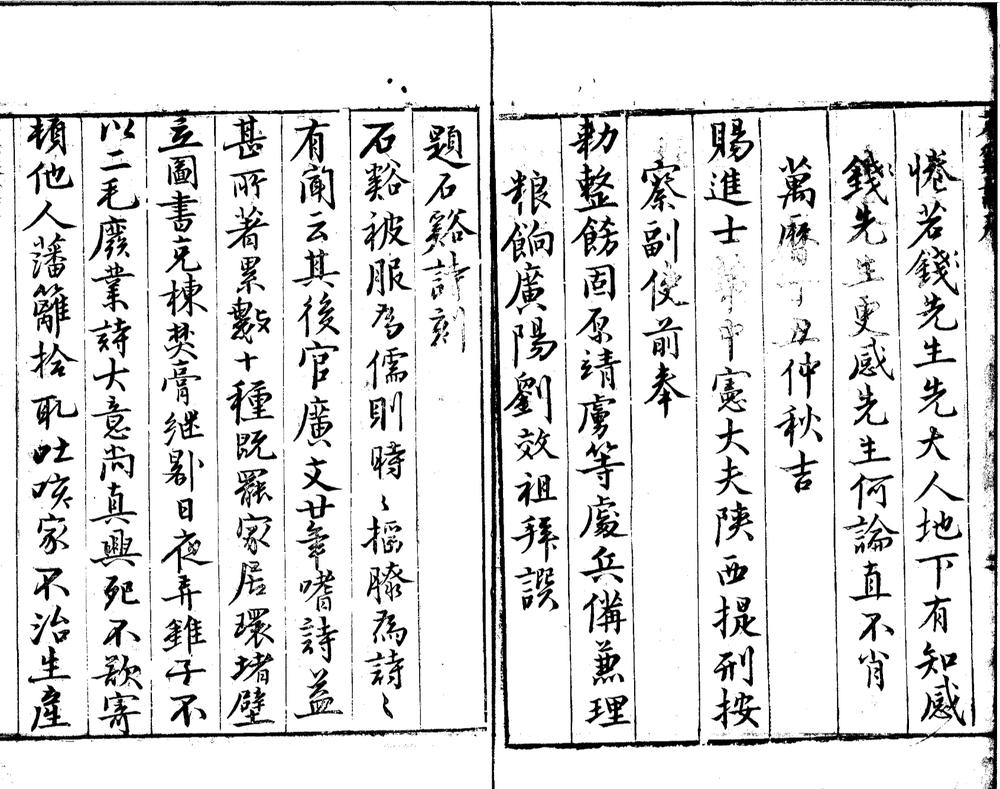 惓若錢先生先大人地下有知感
錢先生更感先生何論直不肖
萬曆丁丑仲秋吉
賜進士 中憲大夫陝西提刑按
察副使前奉
勅整飭固原靖虜等處兵備兼理
粮餉廣陽劉效祖拜譔
題石谿詩刻
石谿被服為儒則時〻搖膝為詩〻
有聞云其後官廣文廿年嗜詩益
甚所著累數十種既罷家居環堵壁
立圖書充棟焚膏繼晷日夜弄雛子不
以二毛廢業詩大意尚真興死不欲寄
頓他人藩籬拾取吐咳家不治生產